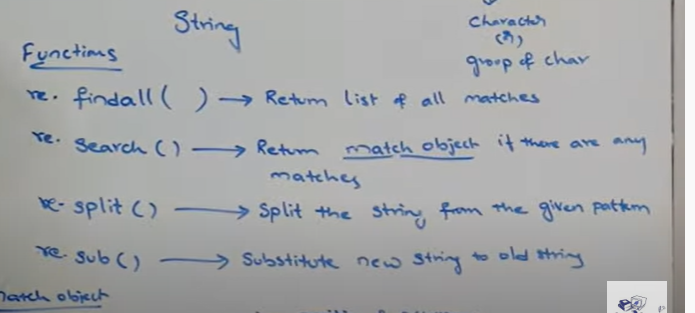 String
character
(or)
group of char
Functions
re. findall( ) → Return list of all matches
re. search () → Return match object if there are any
matches
re. split () → Split the string from the given pattern
re. sub () → Substitute new string to old string
match object